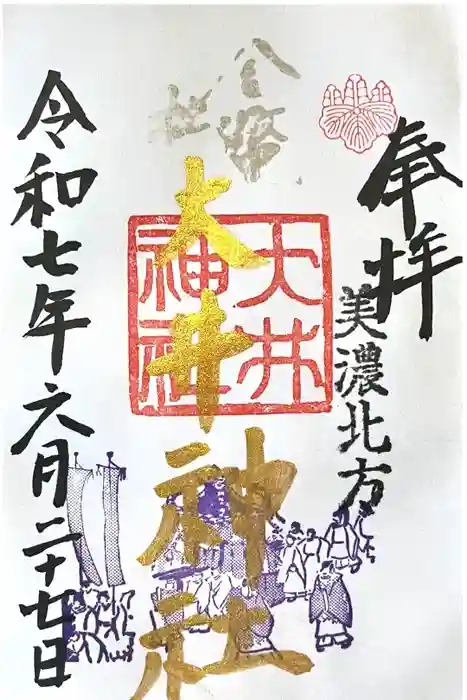 奉拝
美濃北方
金幣
社
大井神社
大井
神社
令和七年六月二十七日